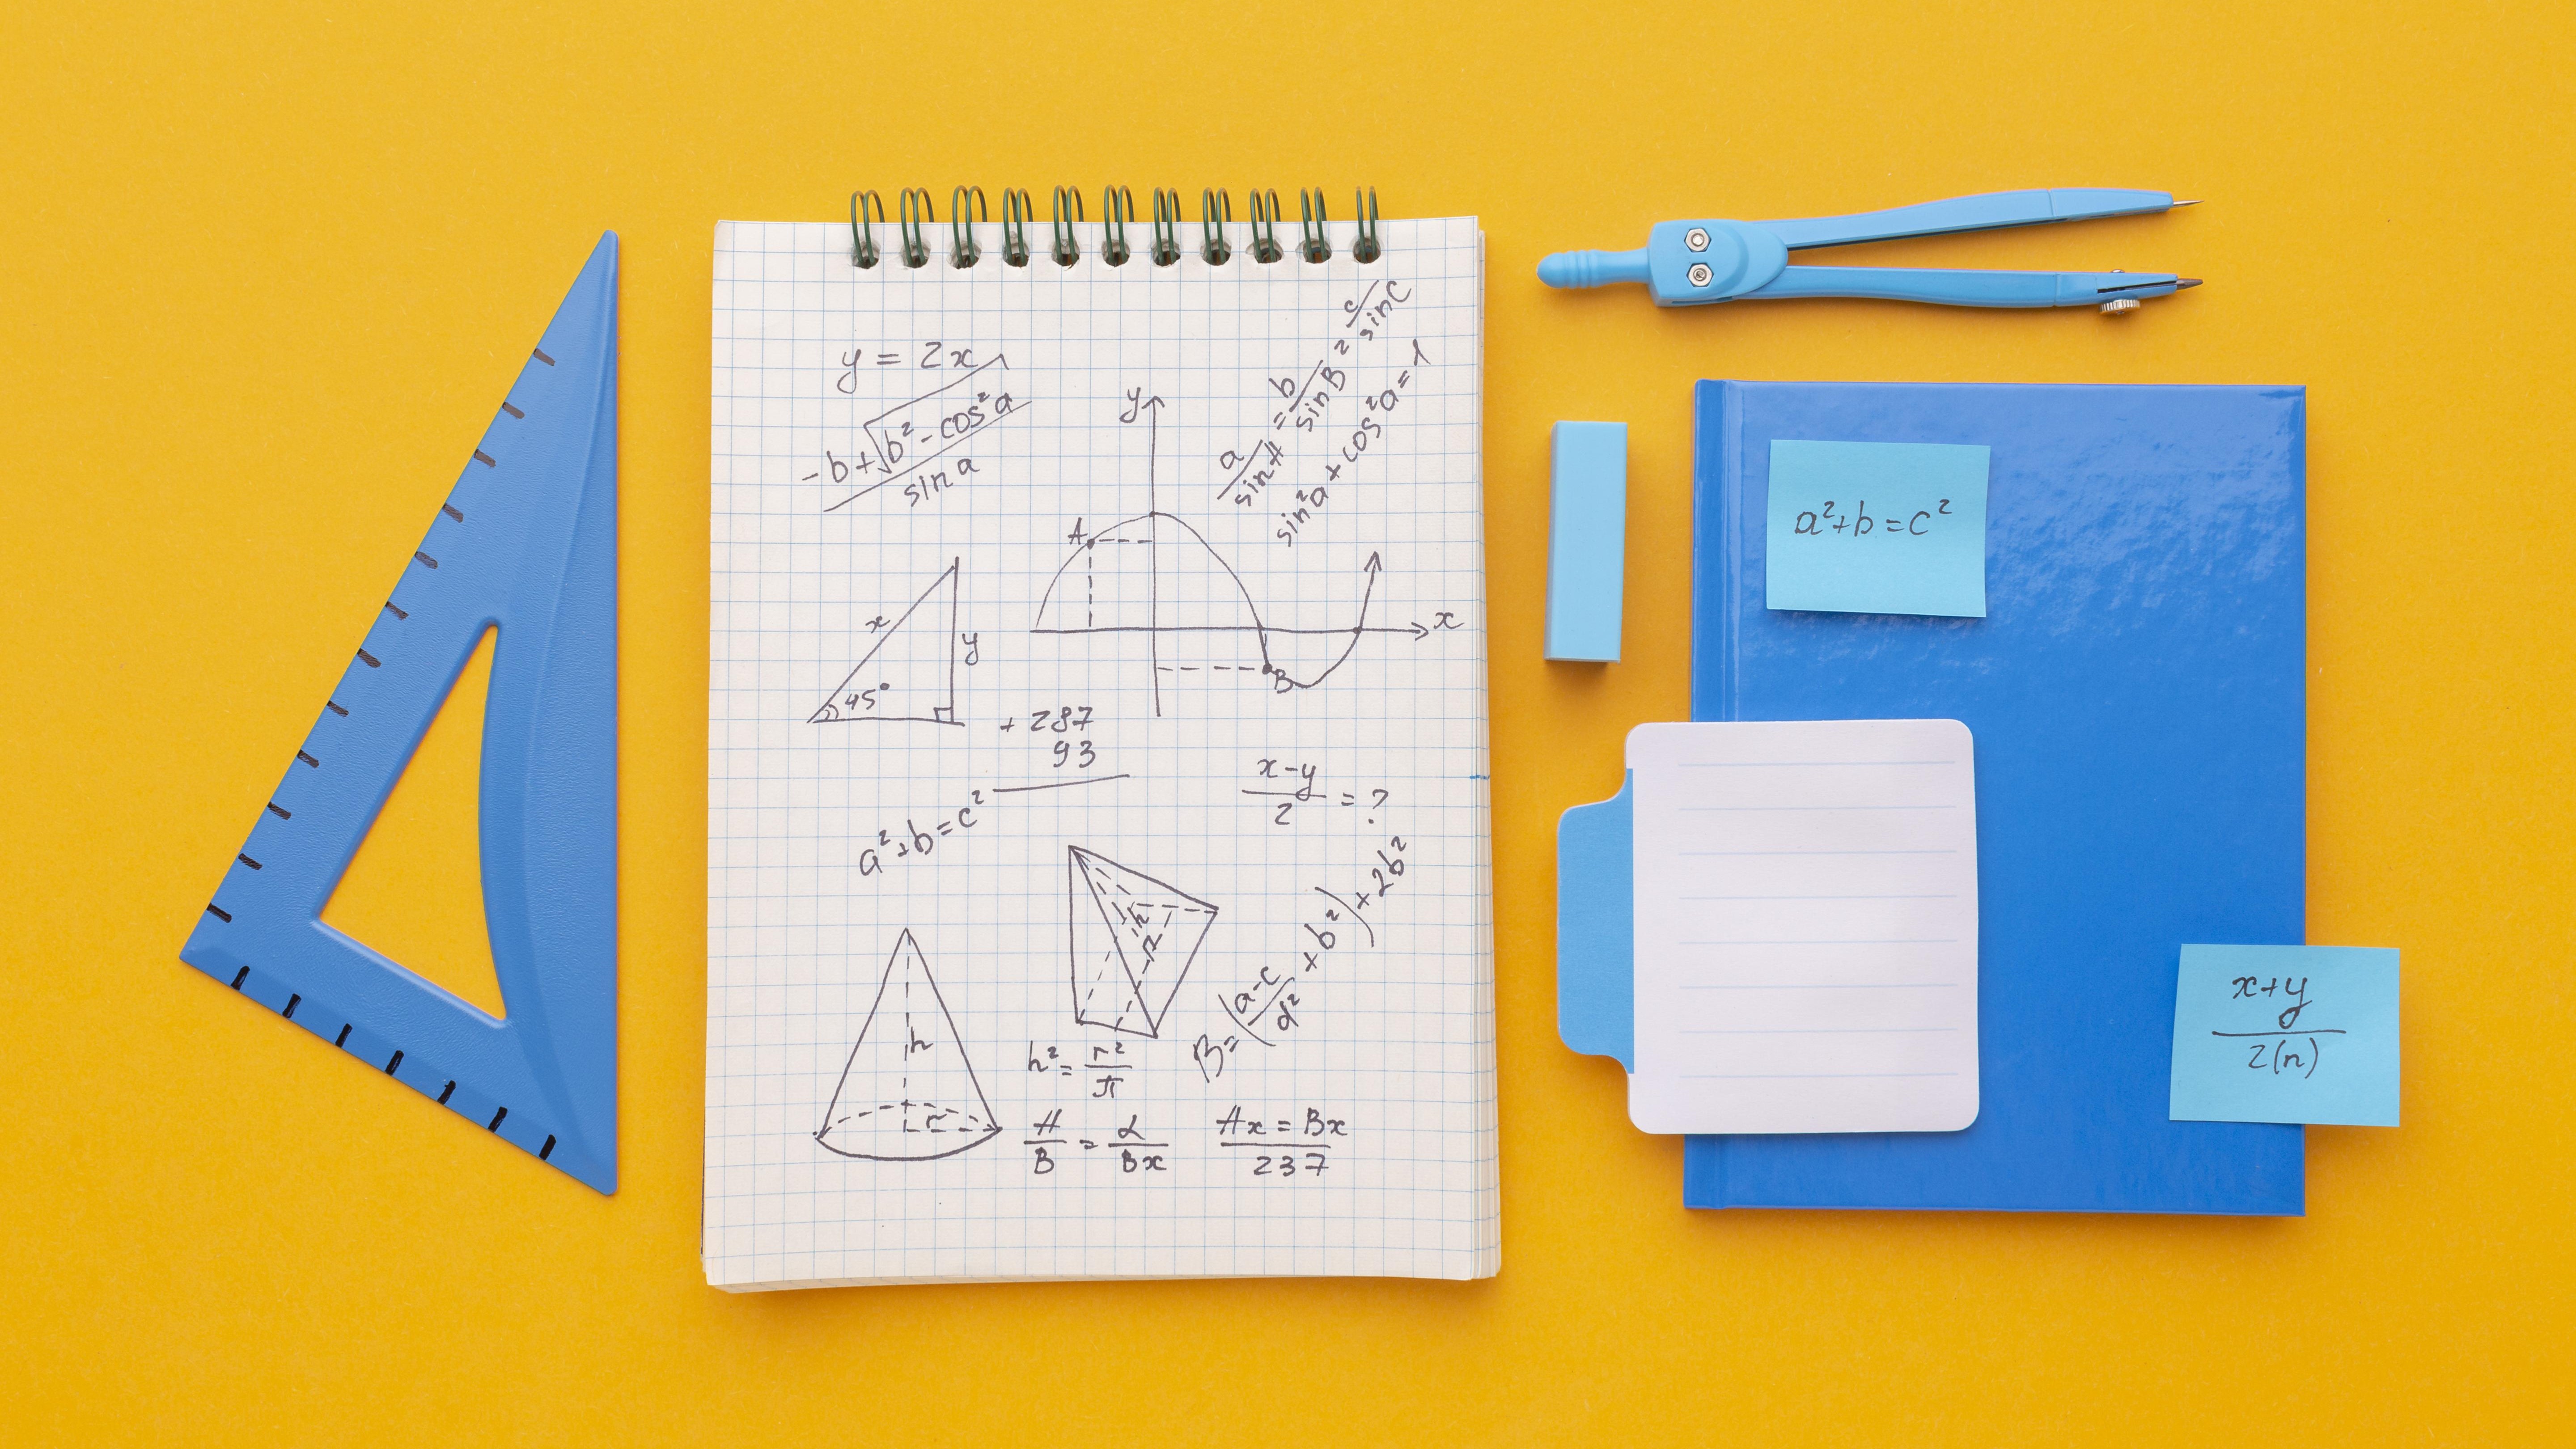 y = 2x
-b+√(b²-cos²a)
sin a
a/sinA = b/sinB = c/sinC
sin²a+cos²a=1
y
A
x
B
x
y
45°
+ 287
93
x-y
2
= ?
a²+b=c²
h
r
h
B=((a-c)/d²+b²)+2b²
h²= r²/π
A/B = α/Bx
Ax = Bx
237
a²+b=c²
x+y
2(n)